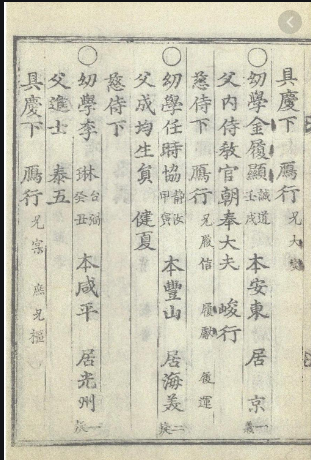 具慶下 鴈行 兄大
○幼學金履顯 誠道 壬戌 本安東 居京 一義
父內侍敎官朝奉大夫 峻行
慈侍下 鴈行 兄履信 履獻 履運
○幼學任時協 靜汝 甲寅 本豐山 居海美 二疑
父成均生員 健夏
慈侍下
○幼學李 琳 台 癸丑 本咸平 居光州 一
父進士 泰五
具慶下 鴈行 兄 庶兄